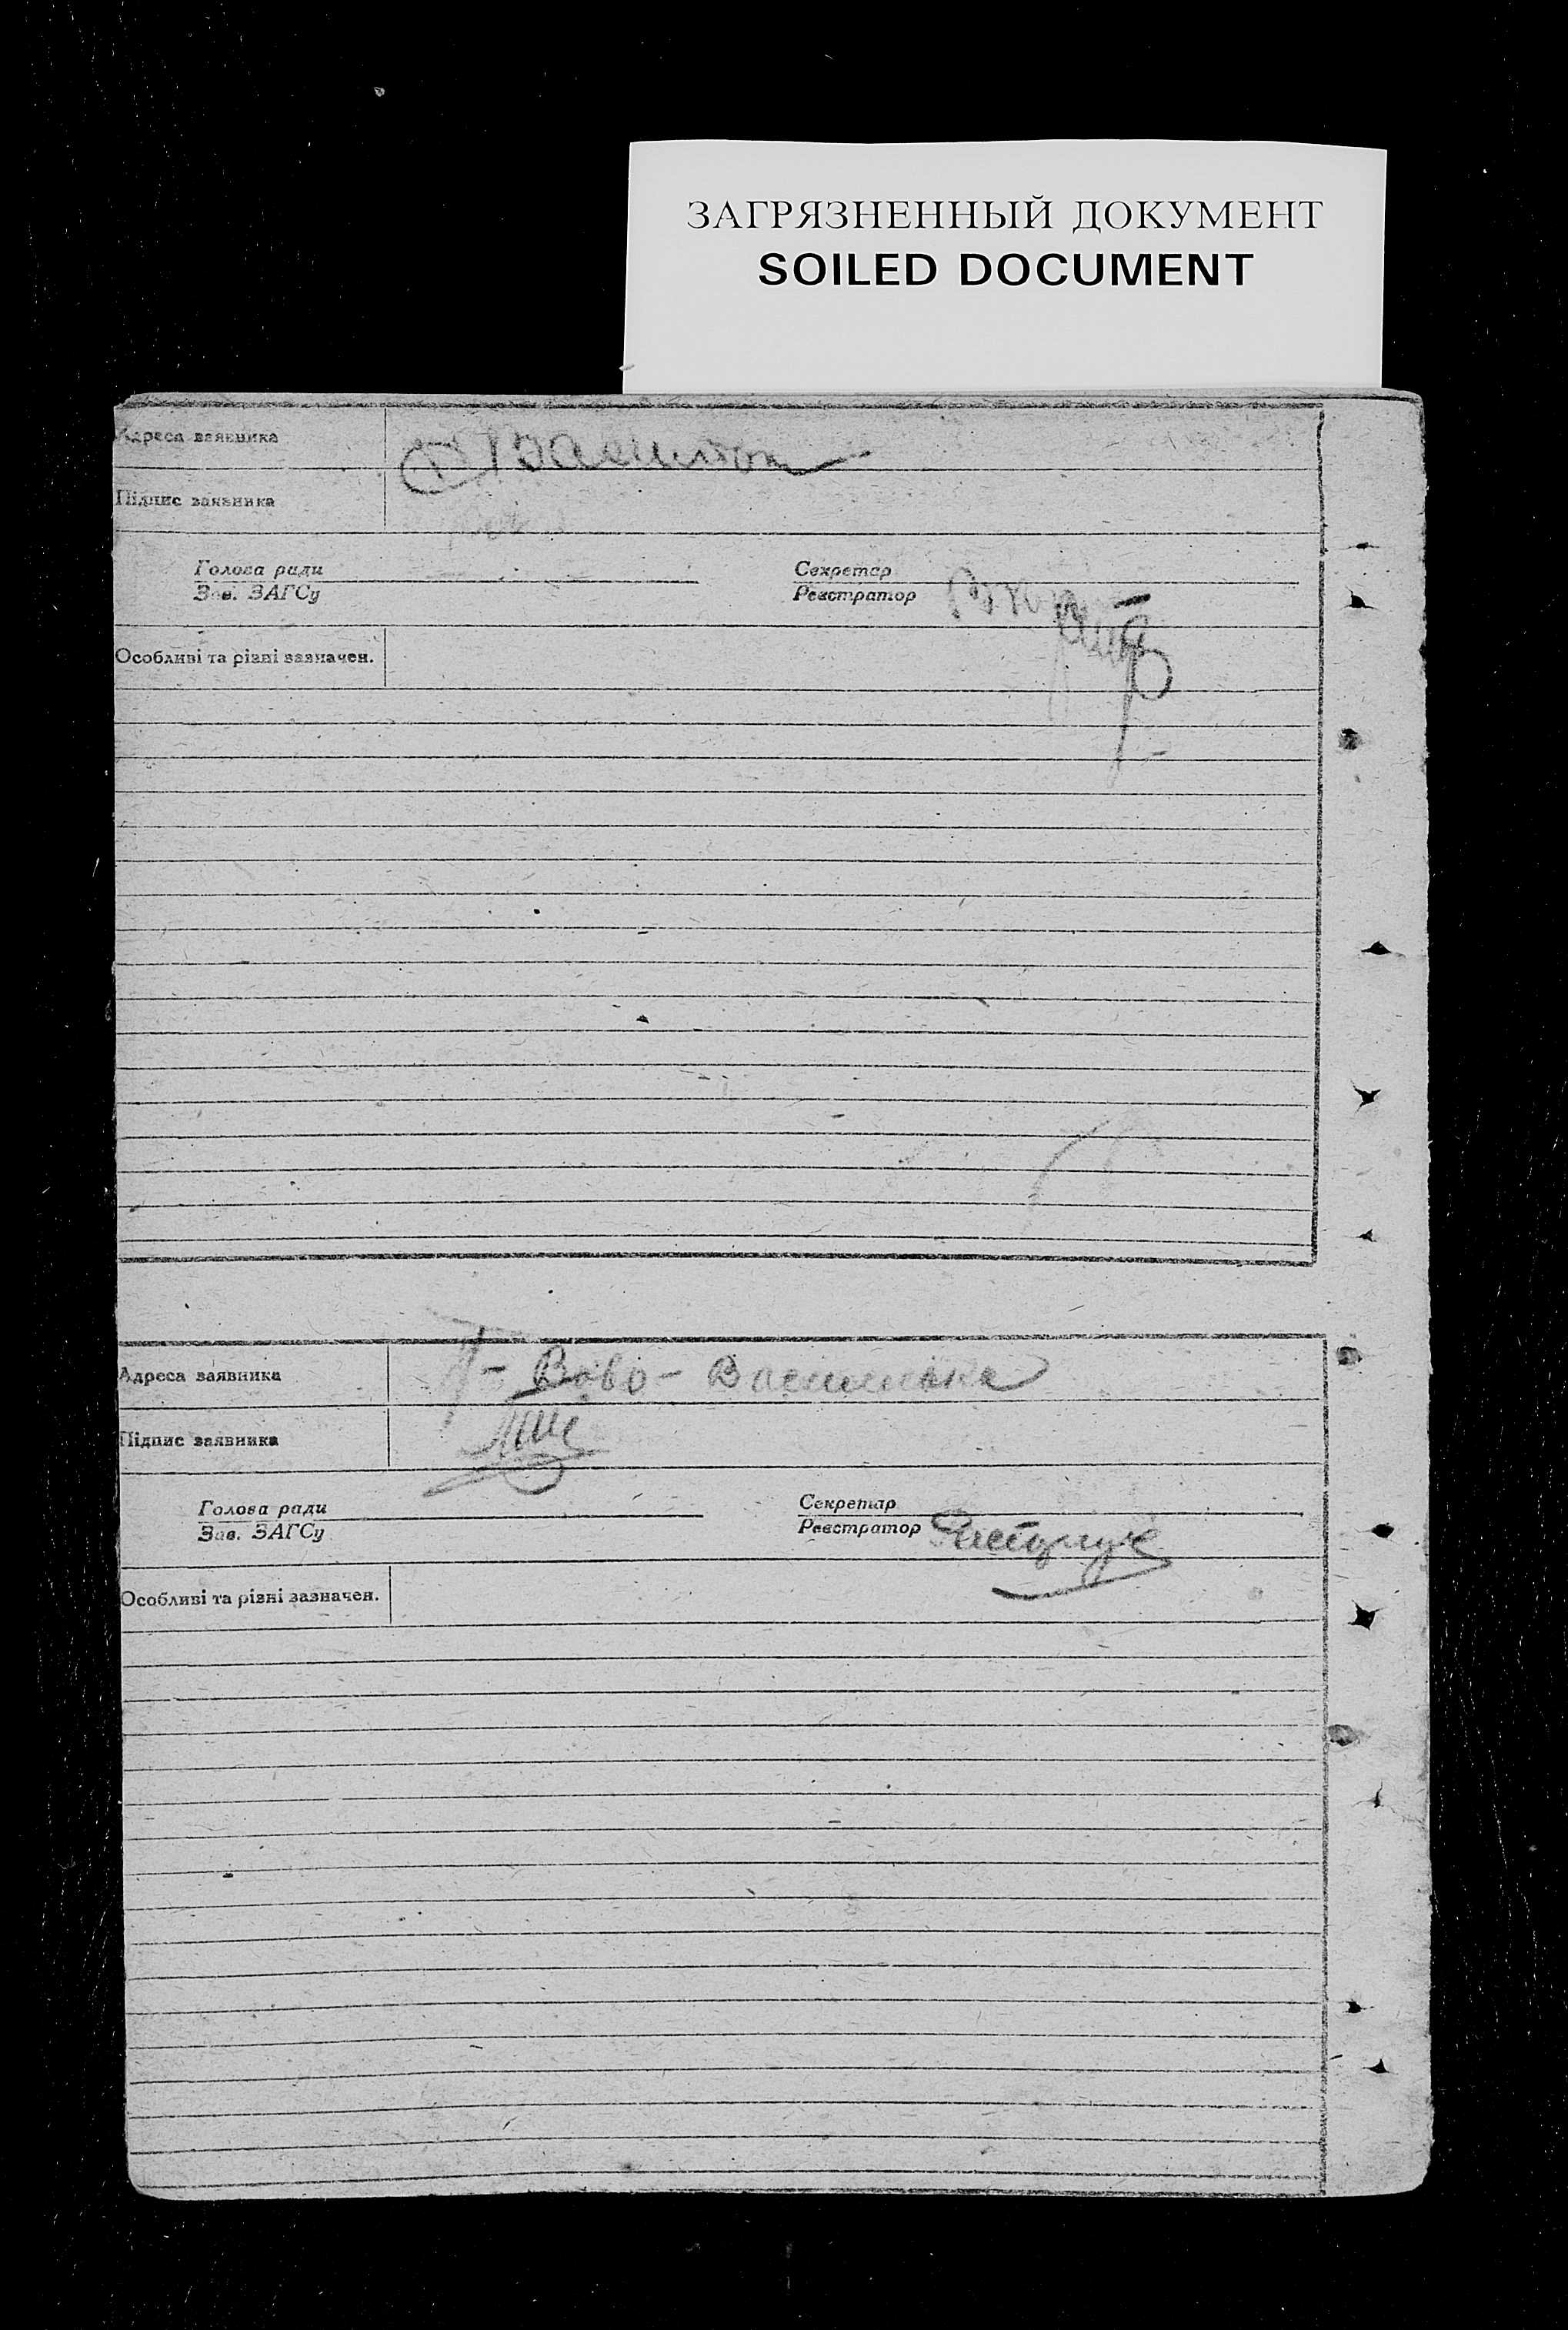 ЗАГРЯЗНЕННЫЙ ДОКУМЕНТ
SOILED DOCUMENT
Адреса заявника
Підпис заявника
Голова ради
Секретар
Зав. ЗАГСу
Реєстратор
Особливі та різні зазначен.
Адреса заявника
Ново-Василівка
Підпис заявника
Голова ради
Секретар
Зав. ЗАГСу
Реєстратор
Особливі та різні зазначен.